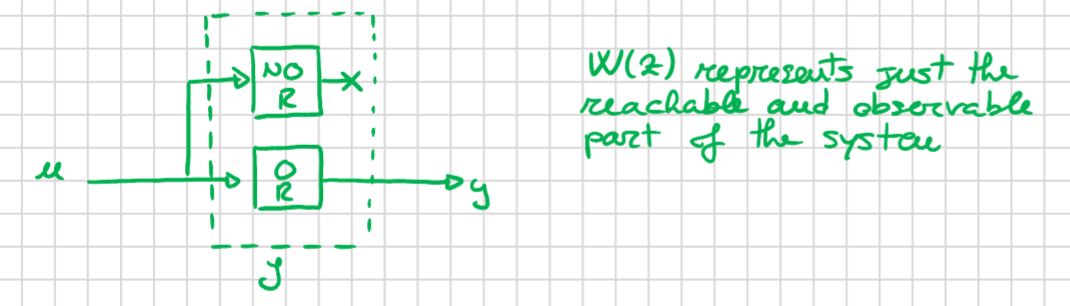 NO
R
O
R
u
y
W(z) represents just the
reachable and observable
part of the system